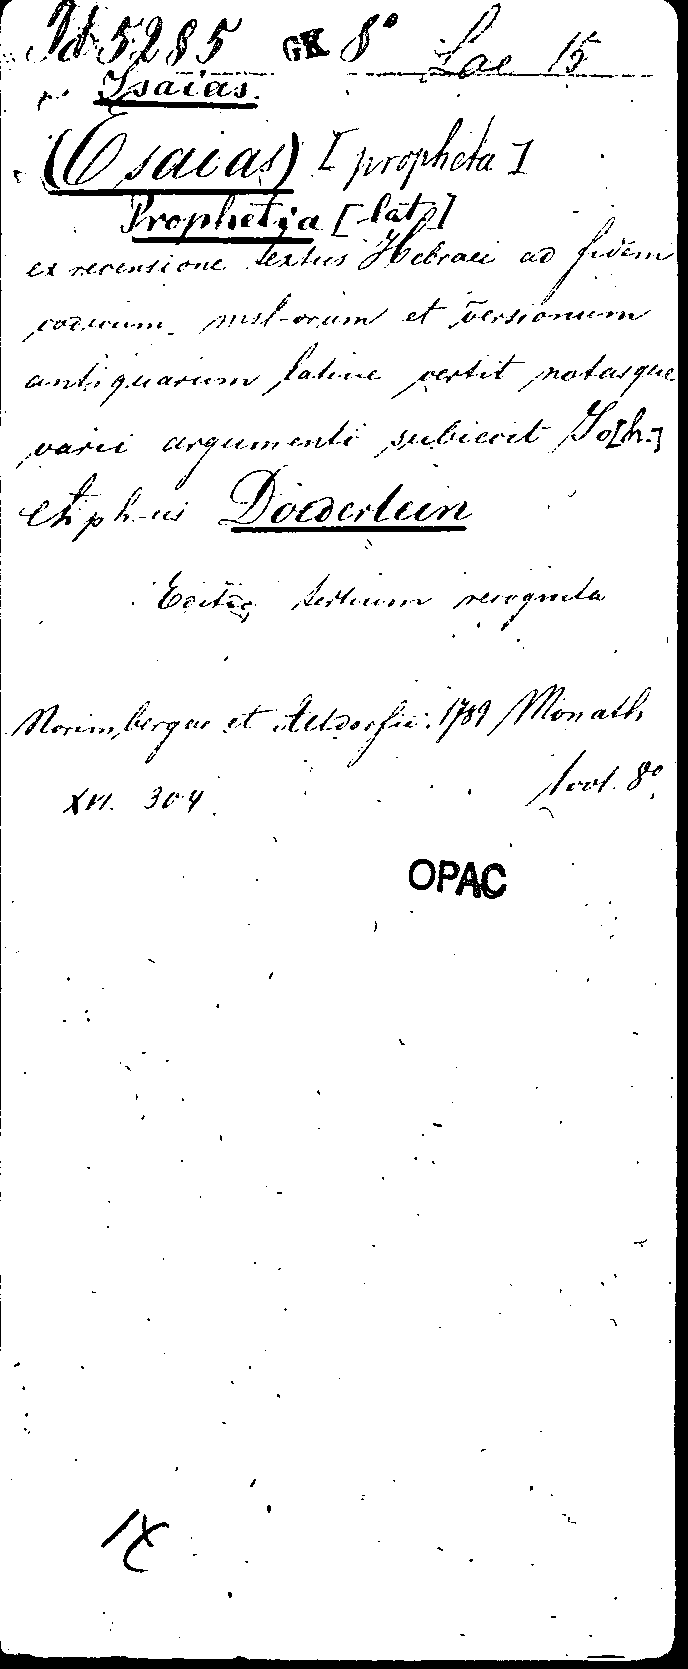 Id 5285 GK 8° Lae 15
Isaias.
(Esaias) [propheta]
Prophetia [lat.]
ex recensione textus Hebraei ad fidem
codicum msl-orum et versionum
antiquarum latine vertit notasque
varii argumenti subiecit Jo[h.]
Chph-us Döderlein
Editio tertium recognita
Norimbergae et Altdorfii. 1789 Monath
XVI. 304. 1 vol. 8°.
OPAC